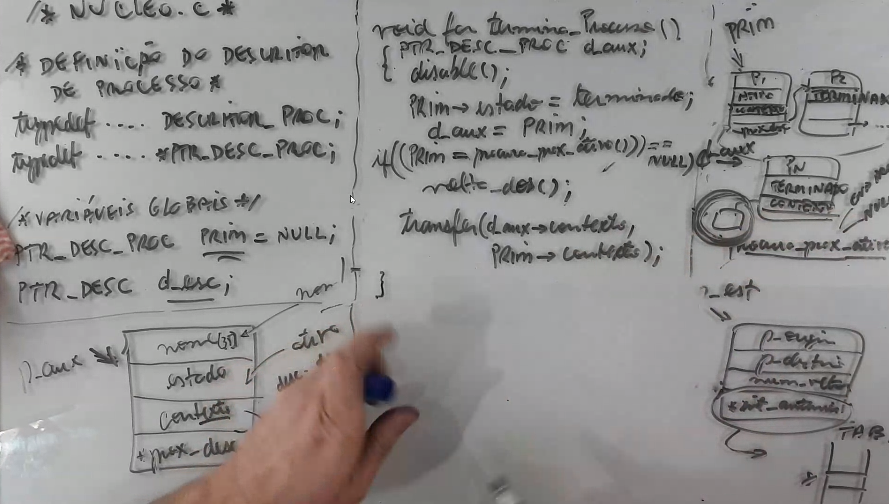 /* NUCLEO.C *
/* DEFINIÇÃO DO DESCRITOR
DE PROCESSO *
typedef .... DESCRITOR_PROC;
typedef .... *PTR_DESC_PROC;
/* VARIÁVEIS GLOBAIS */
PTR_DESC_PROC PRIM = NULL;
PTR_DESC d_esc;
p_aux
nome[35]
estado
contexto
*prox_desc
void far termina_Processo()
{ PTR_DESC_PROC d_aux;
disable();
PRIM→estado = terminado;
d_aux = PRIM;
if((PRIM = procura_prox_ativo()) == NULL)
volta_dos();
transfer(d_aux→contexto,
PRIM→contexto);
}
PRIM
P1
ATIVO
CONTEXTO
P2
TERMINADO
d_aux
PN
TERMINADO
CONTEXTO
procura_prox_ativo
NULL
p_est
p_origem
p_destino
num_vetor
*int_anterior
TAB